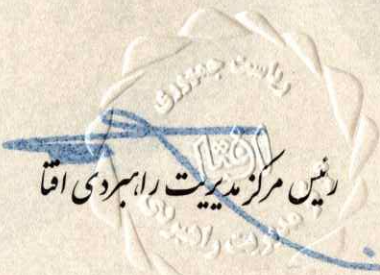 ریاست جمهوری
افتا
رئیس مرکز مدیریت راهبردی افتا
مدیریت راهبردی